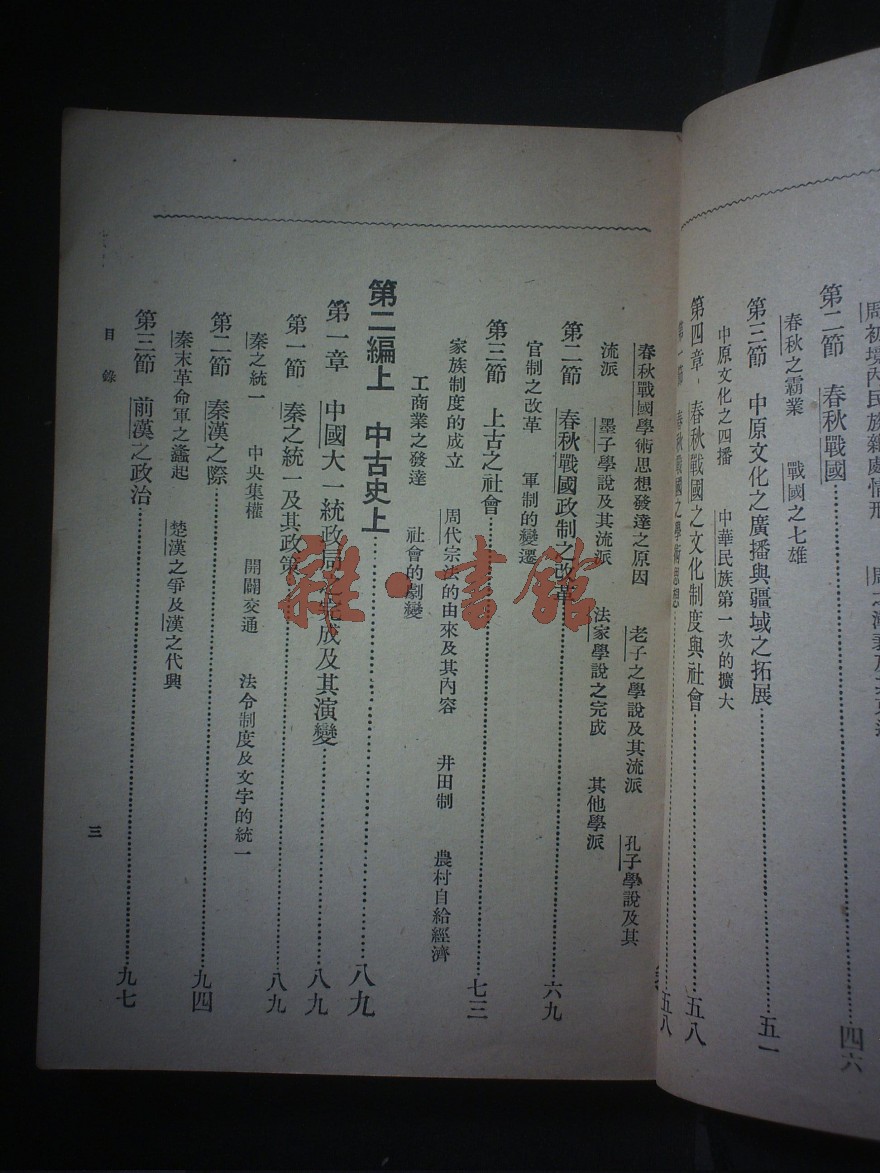 周初境內民族雜處情形
第二節　春秋戰國……四六
春秋之霸業　戰國之七雄
第三節　中原文化之廣播與疆域之拓展……五一
中原文化之四播　中華民族第一次的擴大
第四章　春秋戰國之文化制度與社會……五八
第一節　春秋戰國之學術思想……五八
春秋戰國學術思想發達之原因　老子之學說及其流派　孔子學說及其
流派　墨子學說及其流派　法家學說之完成　其他學派
第二節　春秋戰國政制之改革……六九
官制之改革　軍制的變遷
第三節　上古之社會……七三
家族制度的成立　周代宗法的由來及其內容　井田制　農村自給經濟
工商業之發達　社會的劇變
第二編上　中古史上……八九
第一章　中國大一統政局之完成及其演變……八九
第一節　秦之統一及其政策……八九
秦之統一　中央集權　開闢交通　法令制度及文字的統一
第二節　秦漢之際……九四
秦末革命軍之蠭起　楚漢之爭及漢之代興
第三節　前漢之政治……九七
目錄
三
雜·書館